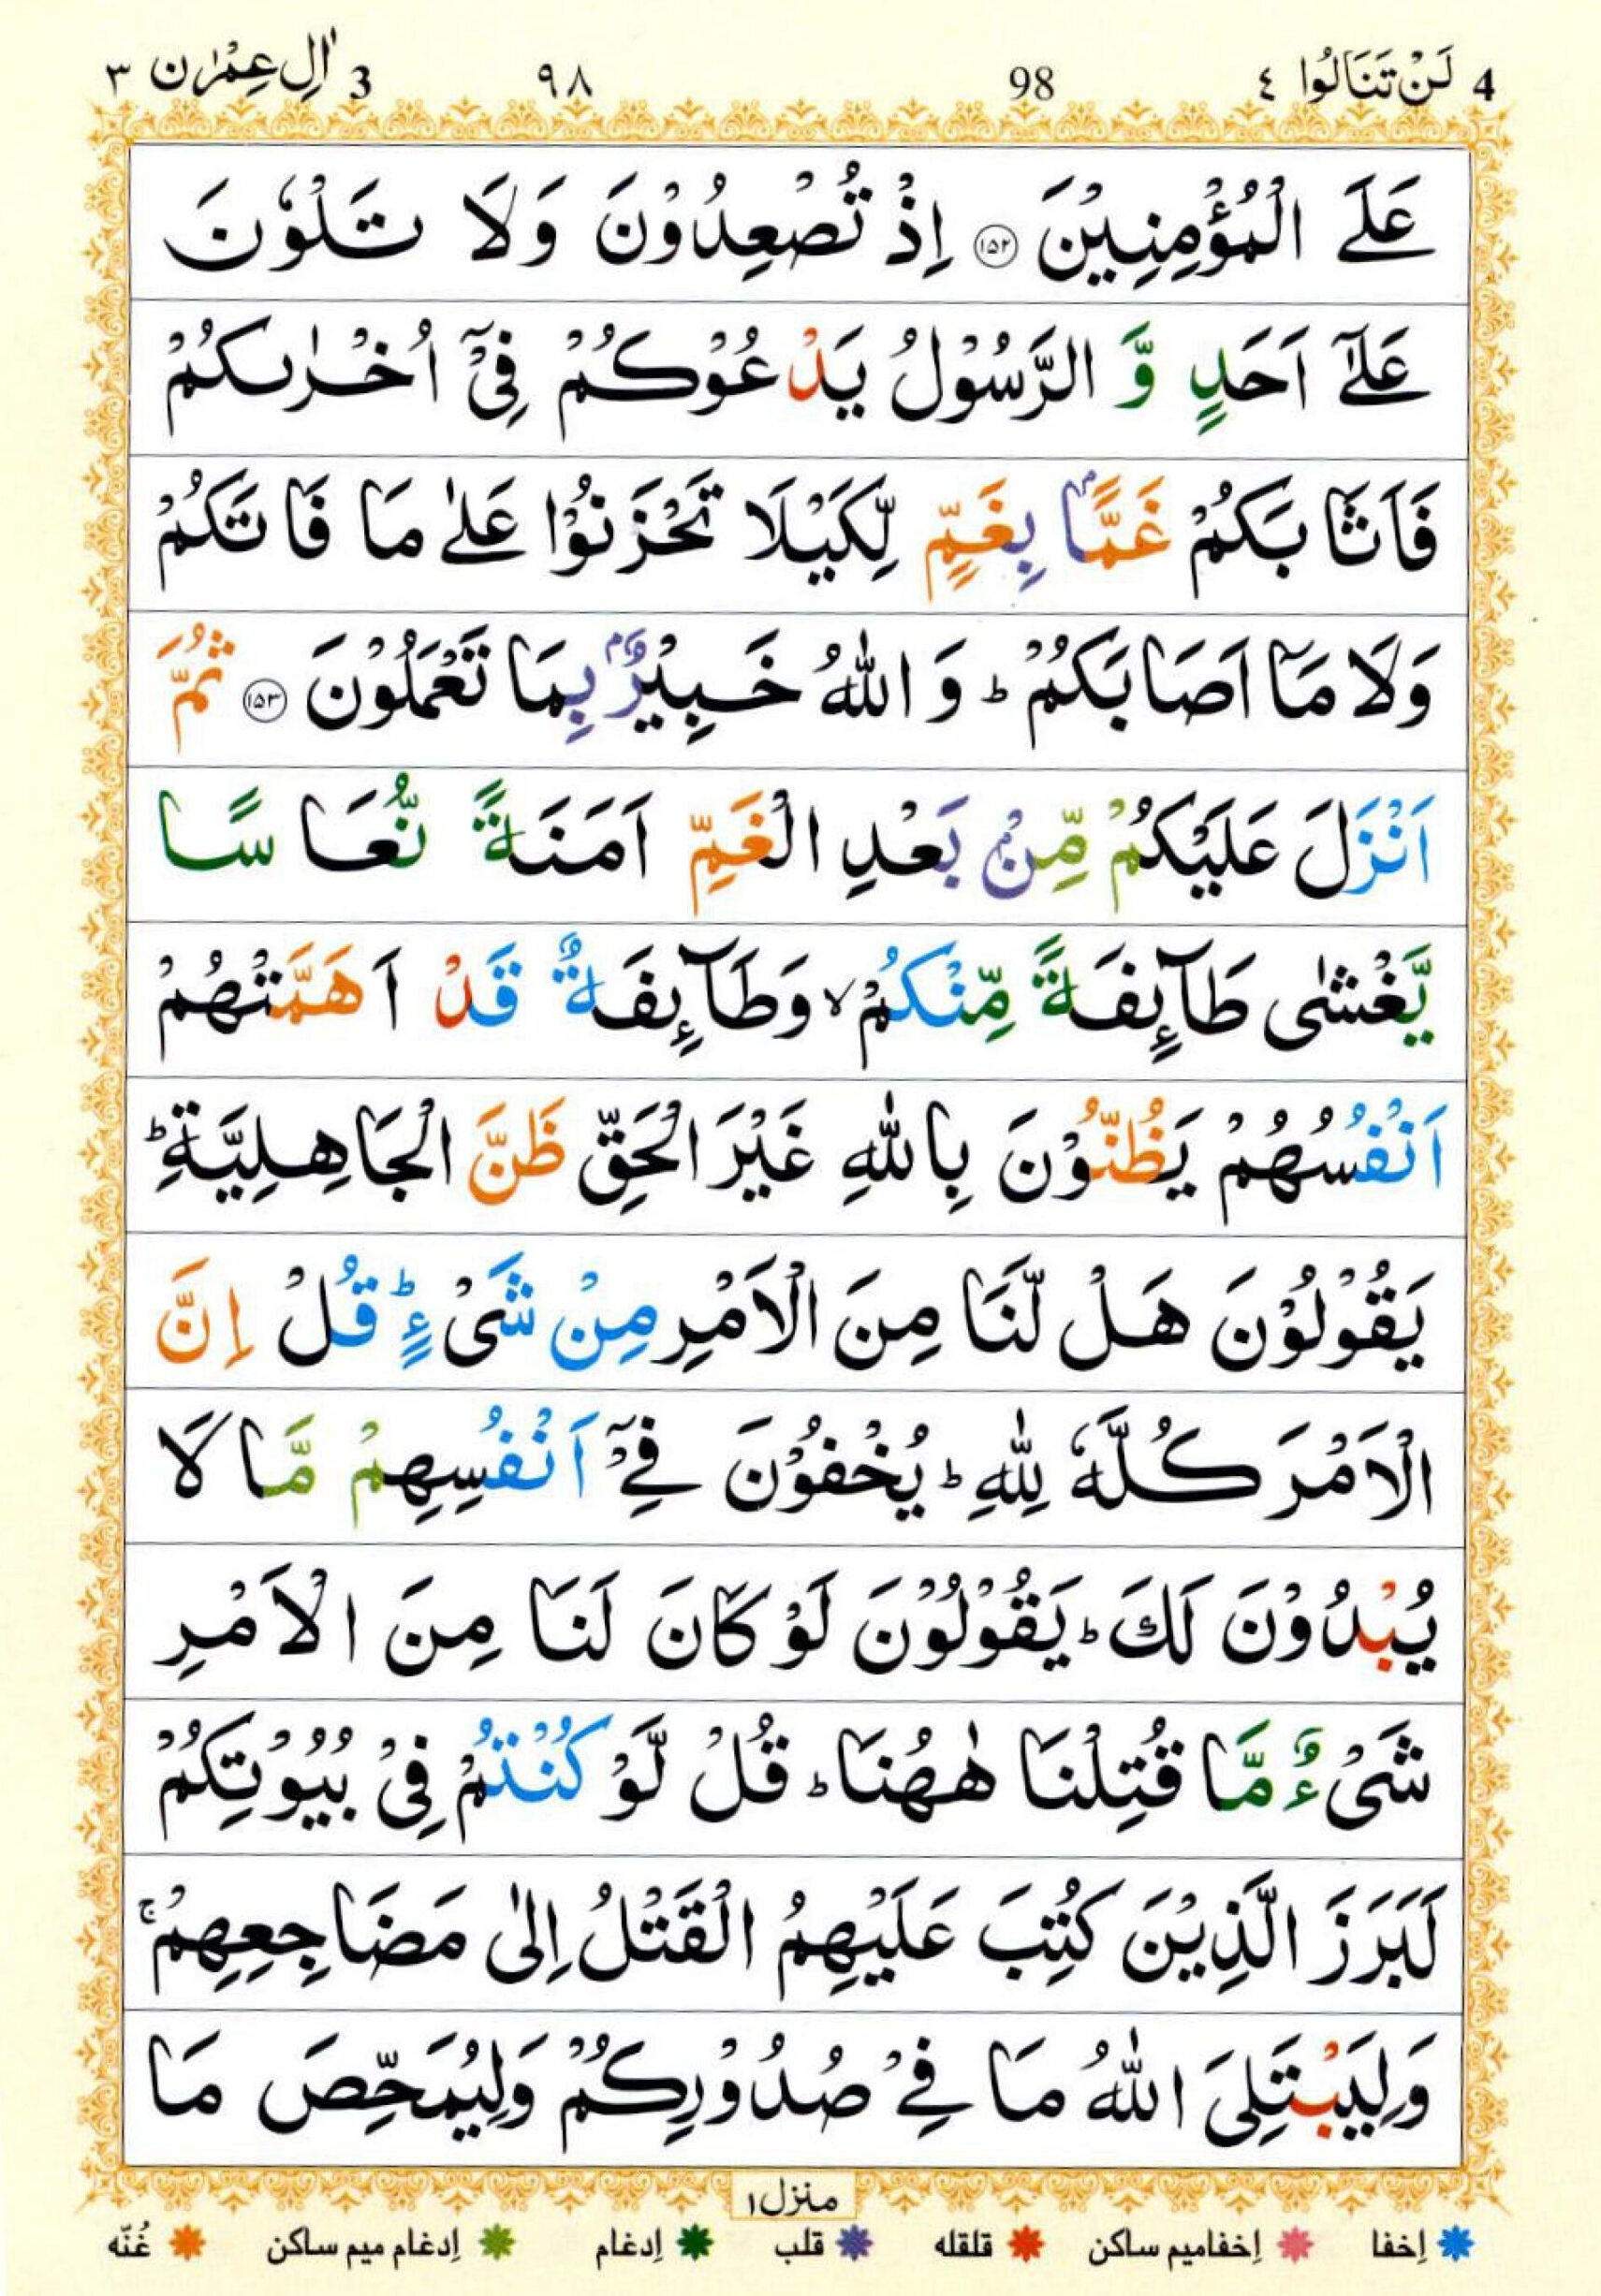 4 لَنْ تَنَالُوا ٤ 98 ٩٨ 3 اٰلِ عِمْرٰن ٣
عَلَى الْمُؤْمِنِيْنَ ۝١٥٢ اِذْ تُصْعِدُوْنَ وَلَا تَلْوٗنَ
عَلٰٓى اَحَدٍ وَّ الرَّسُوْلُ يَدْعُوْكُمْ فِيْٓ اُخْرٰىكُمْ
فَاَثَابَكُمْ غَمًّاۢ بِغَمٍّ لِّكَيْلَا تَحْزَنُوْا عَلٰى مَا فَاتَكُمْ
وَلَا مَآ اَصَابَكُمْ ؕ وَ اللّٰهُ خَبِيْرٌۢ بِمَا تَعْمَلُوْنَ ۝١٥٣ ثُمَّ
اَنْزَلَ عَلَيْكُمْ مِّنْۢ بَعْدِ الْغَمِّ اَمَنَةً نُّعَاسًا
يَّغْشٰى طَآئِفَةً مِّنْكُمْ ۙ وَطَآئِفَةٌ قَدْ اَهَمَّتْهُمْ
اَنْفُسُهُمْ يَظُنُّوْنَ بِاللّٰهِ غَيْرَ الْحَقِّ ظَنَّ الْجَاهِلِيَّةِ ؕ
يَقُوْلُوْنَ هَلْ لَّنَا مِنَ الْاَمْرِ مِنْ شَيْءٍ ؕ قُلْ اِنَّ
الْاَمْرَ كُلَّهٗ لِلّٰهِ ؕ يُخْفُوْنَ فِيْٓ اَنْفُسِهِمْ مَّا لَا
يُبْدُوْنَ لَكَ ؕ يَقُوْلُوْنَ لَوْ كَانَ لَنَا مِنَ الْاَمْرِ
شَيْءٌ مَّا قُتِلْنَا هٰهُنَا ؕ قُلْ لَّوْ كُنْتُمْ فِيْ بُيُوْتِكُمْ
لَبَرَزَ الَّذِيْنَ كُتِبَ عَلَيْهِمُ الْقَتْلُ اِلٰى مَضَاجِعِهِمْ ۚ
وَلِيَبْتَلِيَ اللّٰهُ مَا فِيْ صُدُوْرِكُمْ وَلِيُمَحِّصَ مَا
منزل١
إخفا إخفاميم ساكن قلقله قلب إدغام إدغام ميم ساكن غُنّه